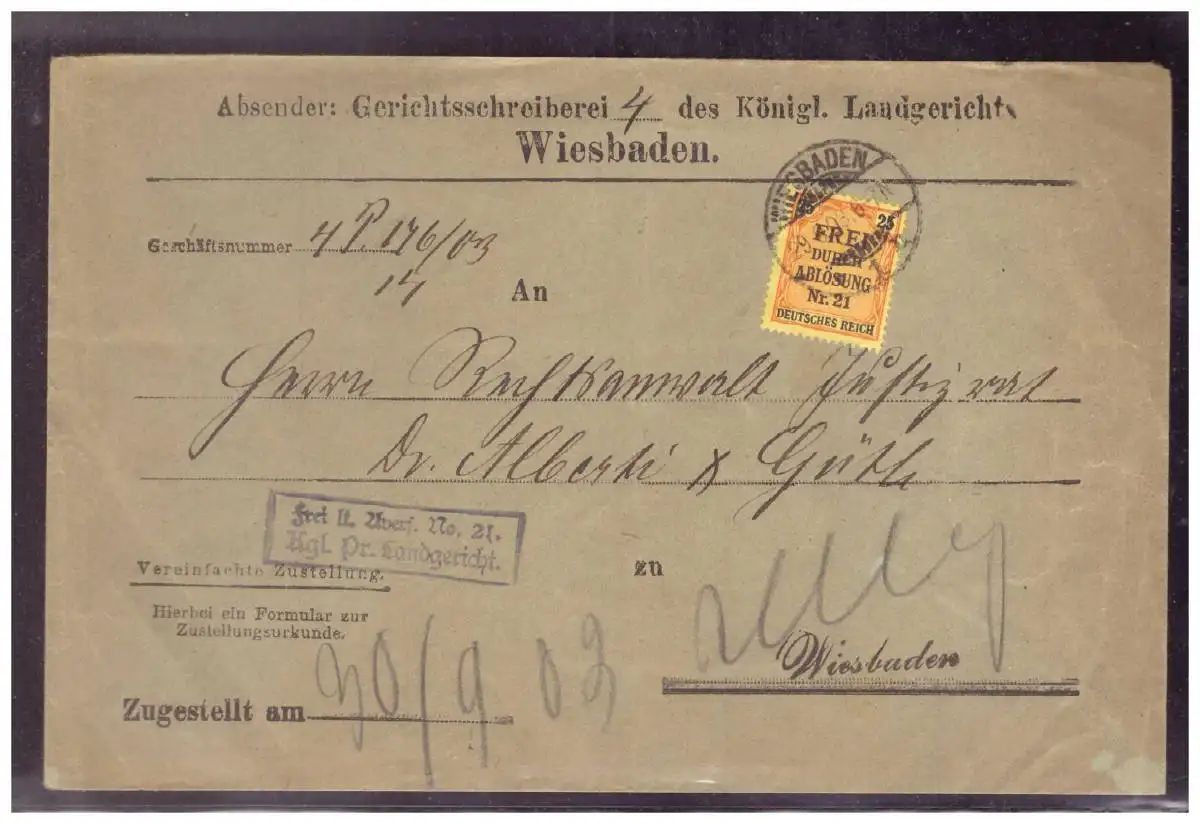 Absender: Gerichtsschreiberei 4 des Königl. Landgerichts
Wiesbaden.
WIESBADEN
Geschäftsnummer 4 P. 176/03
14
25
FREI
DURCH
ABLÖSUNG
Nr. 21
DEUTSCHES REICH
An
Herrn Rechtsanwalt Justizrat
Dr. Alberti & Güth
Frei lt. Avers. No. 21.
Kgl. Pr. Landgericht.
Vereinfachte Zustellung.
zu
Hierbei ein Formular zur
Zustellungsurkunde.
Wiesbaden
Zugestellt am 30/9 03